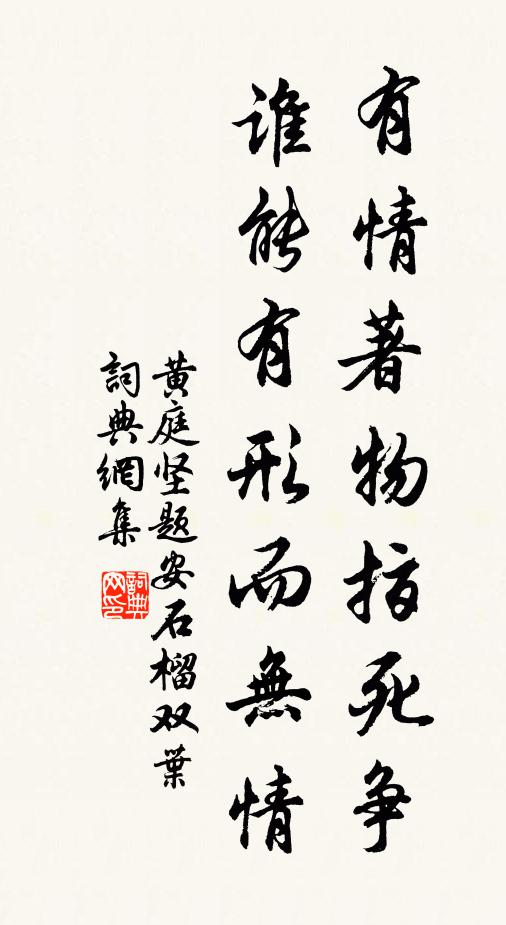 有情著物抵死争
誰能有形而無情
黄庭坚题安石榴双葉
詞典網集
詞典网印